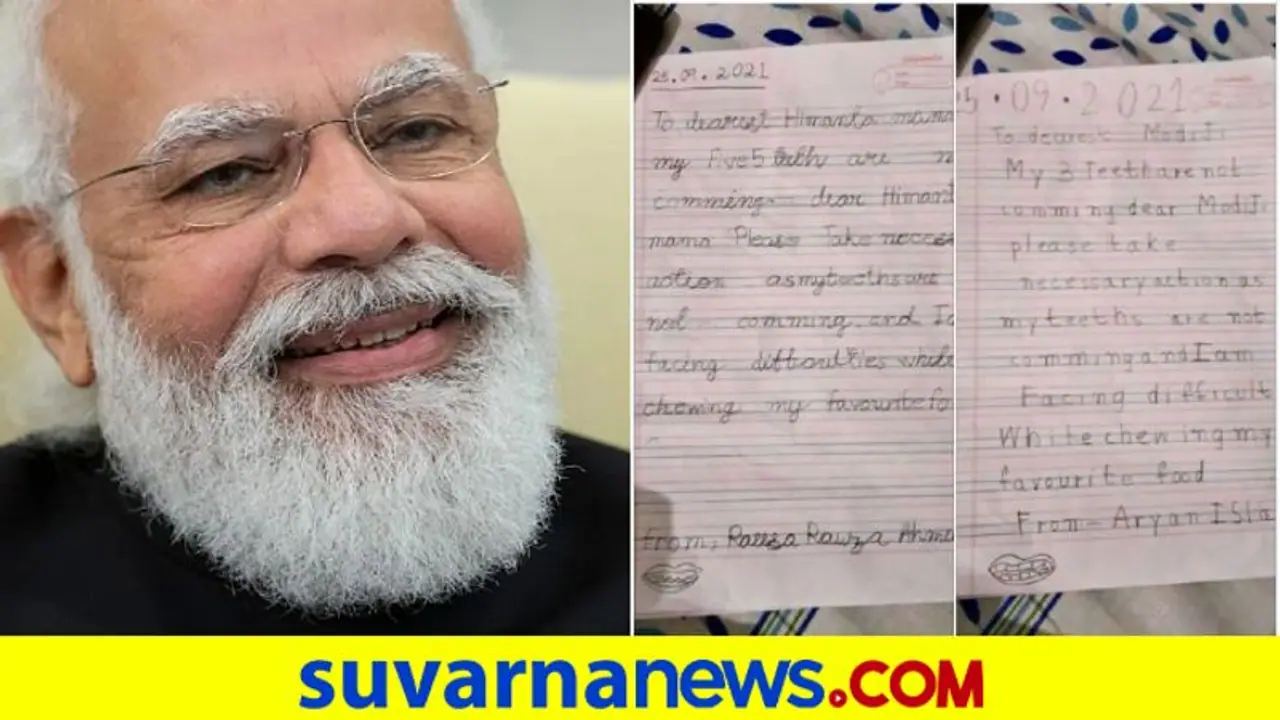 25.09.2021
To dearest Himanta mama
my Five 5 teeth are n
comming. dear Himant
mama Please Take necces
action asmyteethsare
not comming and I a
facing difficulties while
chewing my favourite fo
From, Raeesa Rawza Ahma
5.09.2021
To dearest ModiJi
My 3 Teeth are not
comming dear ModiJi
please take
necessary action as
my teeths are not
comming and I am
Facing difficult
While chewing my
favourite food
From - Aryan ISla
suvarnanews.COM